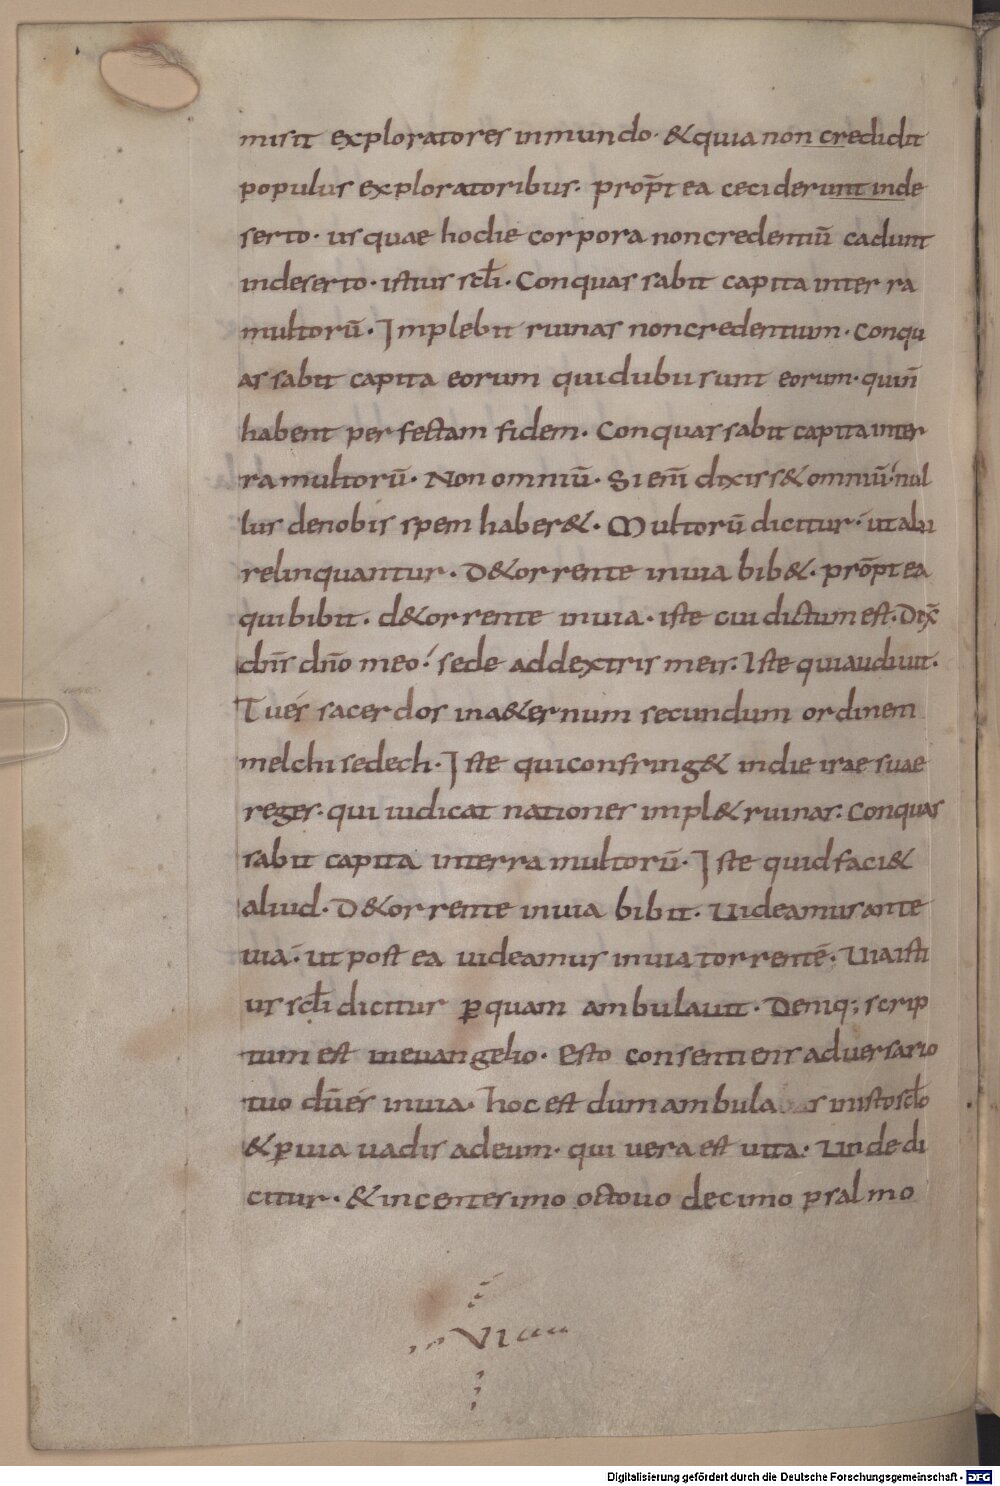 misit exploratores inmundo· &quia non credidit
populus exploratoribus· prop̄t ea ceciderunt inde
serto· usquae hodie corpora noncredentiū cadunt
indeserto· istius scl̄i· Conquassabit capita inter ra
multorū· Implebit ruinas noncredentium· Conqu
assabit capita eorum quidubii sunt eorum· quin̄
habent perfectam fidem· Conquassabit capita inter
ra multorū· Non omniū· Si enī dixiss& omniū· nul
lus denobis spem haber&· Multorū dicitur· ut alii
relinquantur· D&orrente inuia bib&· prop̄t ea
quibibit· d&orrente inuia· iste cui dictum est· Dix̄
dn̄s dn̄o meo· sede addextris meis· Iste quiaudiuit·
Tues sacerdos ina&ernum secundum ordinem
melchisedech· Iste quiconfring& indie irae suae
reges· qui iudicat nationes impl& ruinas· Conquas
sabit capita interra multorū· Iste quid faci&
aliud· D&orrente inuia bibit· Uideamus ante
uiā· ut post ea uideamus inuia torrentē· Uia isti
us scl̄i dicitur ꝑquam ambulauit· Demq; scrip
tum est ineuangelio· Esto consentiens aduersario
tuo dū es inuia· hoc est dum ambula s inistoscl̄o
&ꝑuia uadis adeum· qui uera est uita· Unde di
citur· &incentesimo octouo decimo psalmo
VI
Digitalisierung gefördert durch die Deutsche Forschungsgemeinschaft - DFG